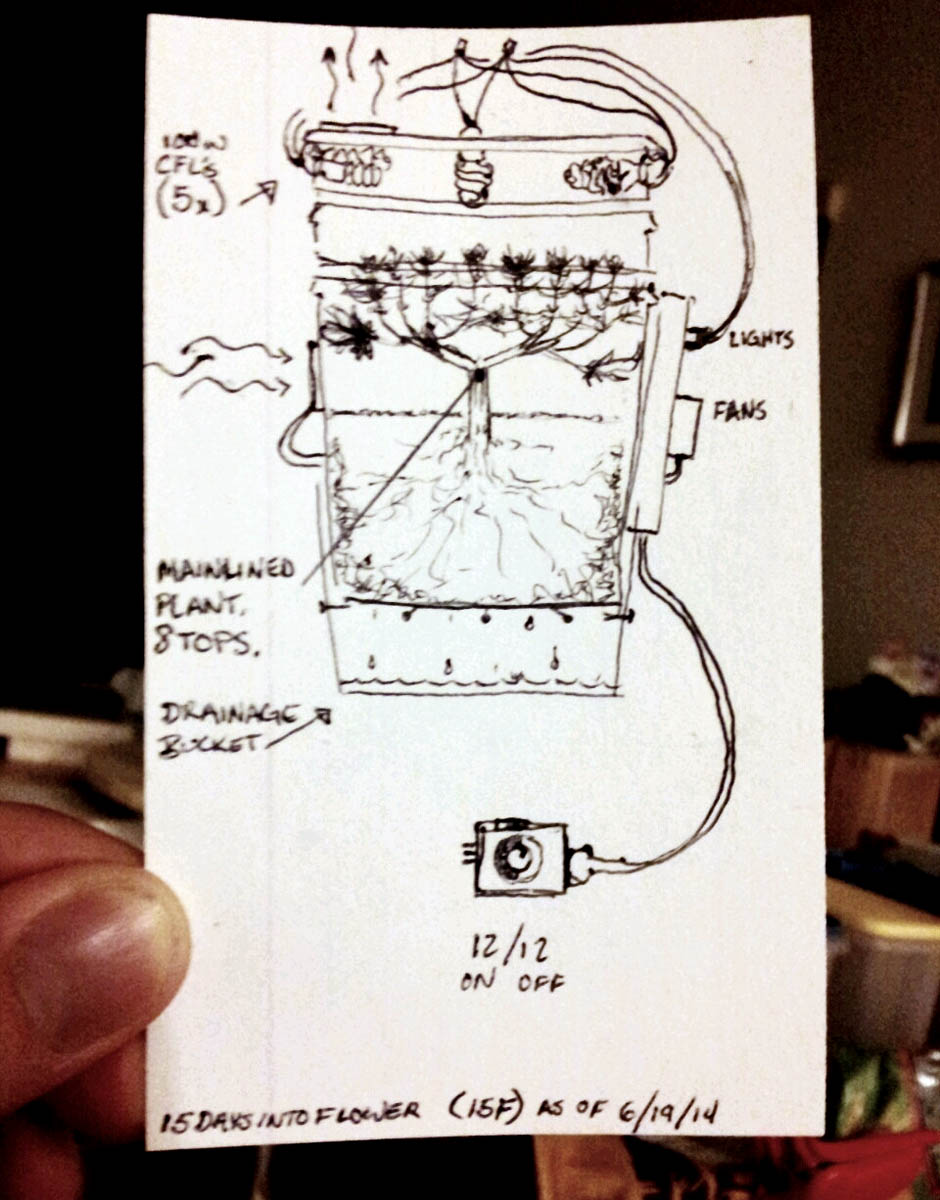 100W
CFL's
(5x)
LIGHTS
FANS
MAINLINED
PLANT.
8 TOPS.
DRAINAGE
BUCKET
12/12
ON OFF
15 DAYS INTO FLOWER (15F) AS OF 6/19/14